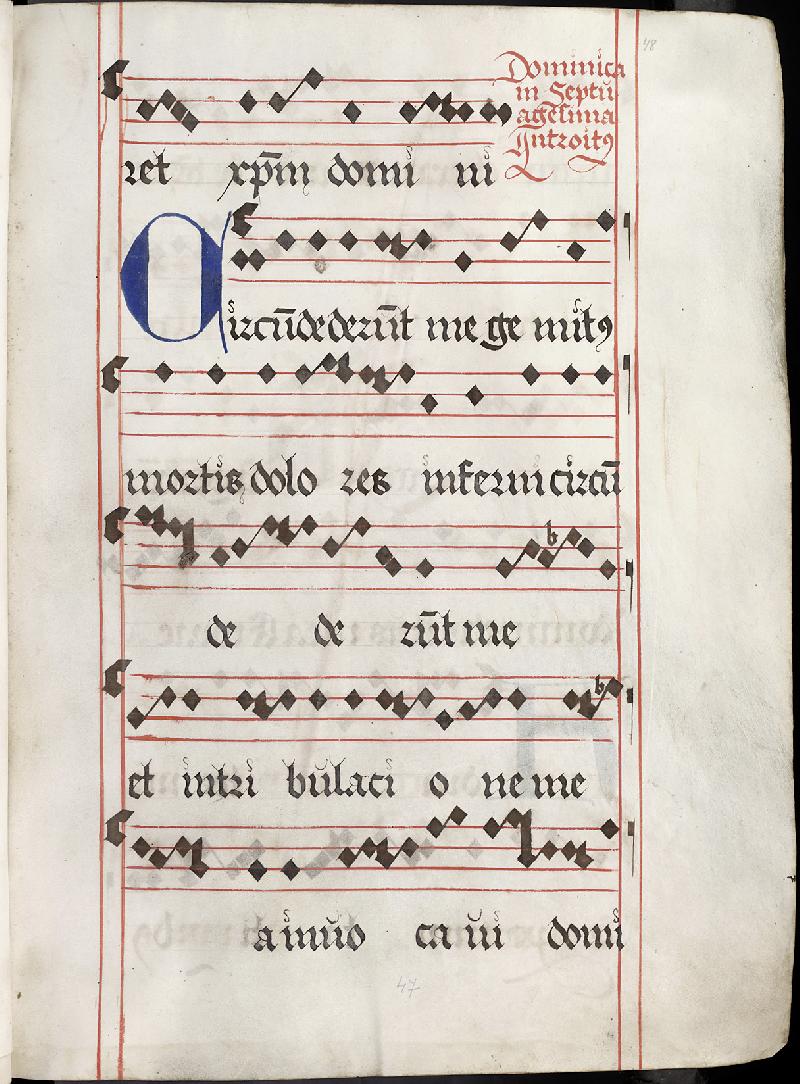 48
Dominica
in Septu
agesima
Introitꝰ
ret xp̄m domi ni
Circūdederūt me ge mitꝰ
mortis dolo res inferni circū
de de rūt me
et in tri bulaci o ne me
a inuo ca ui domi
47